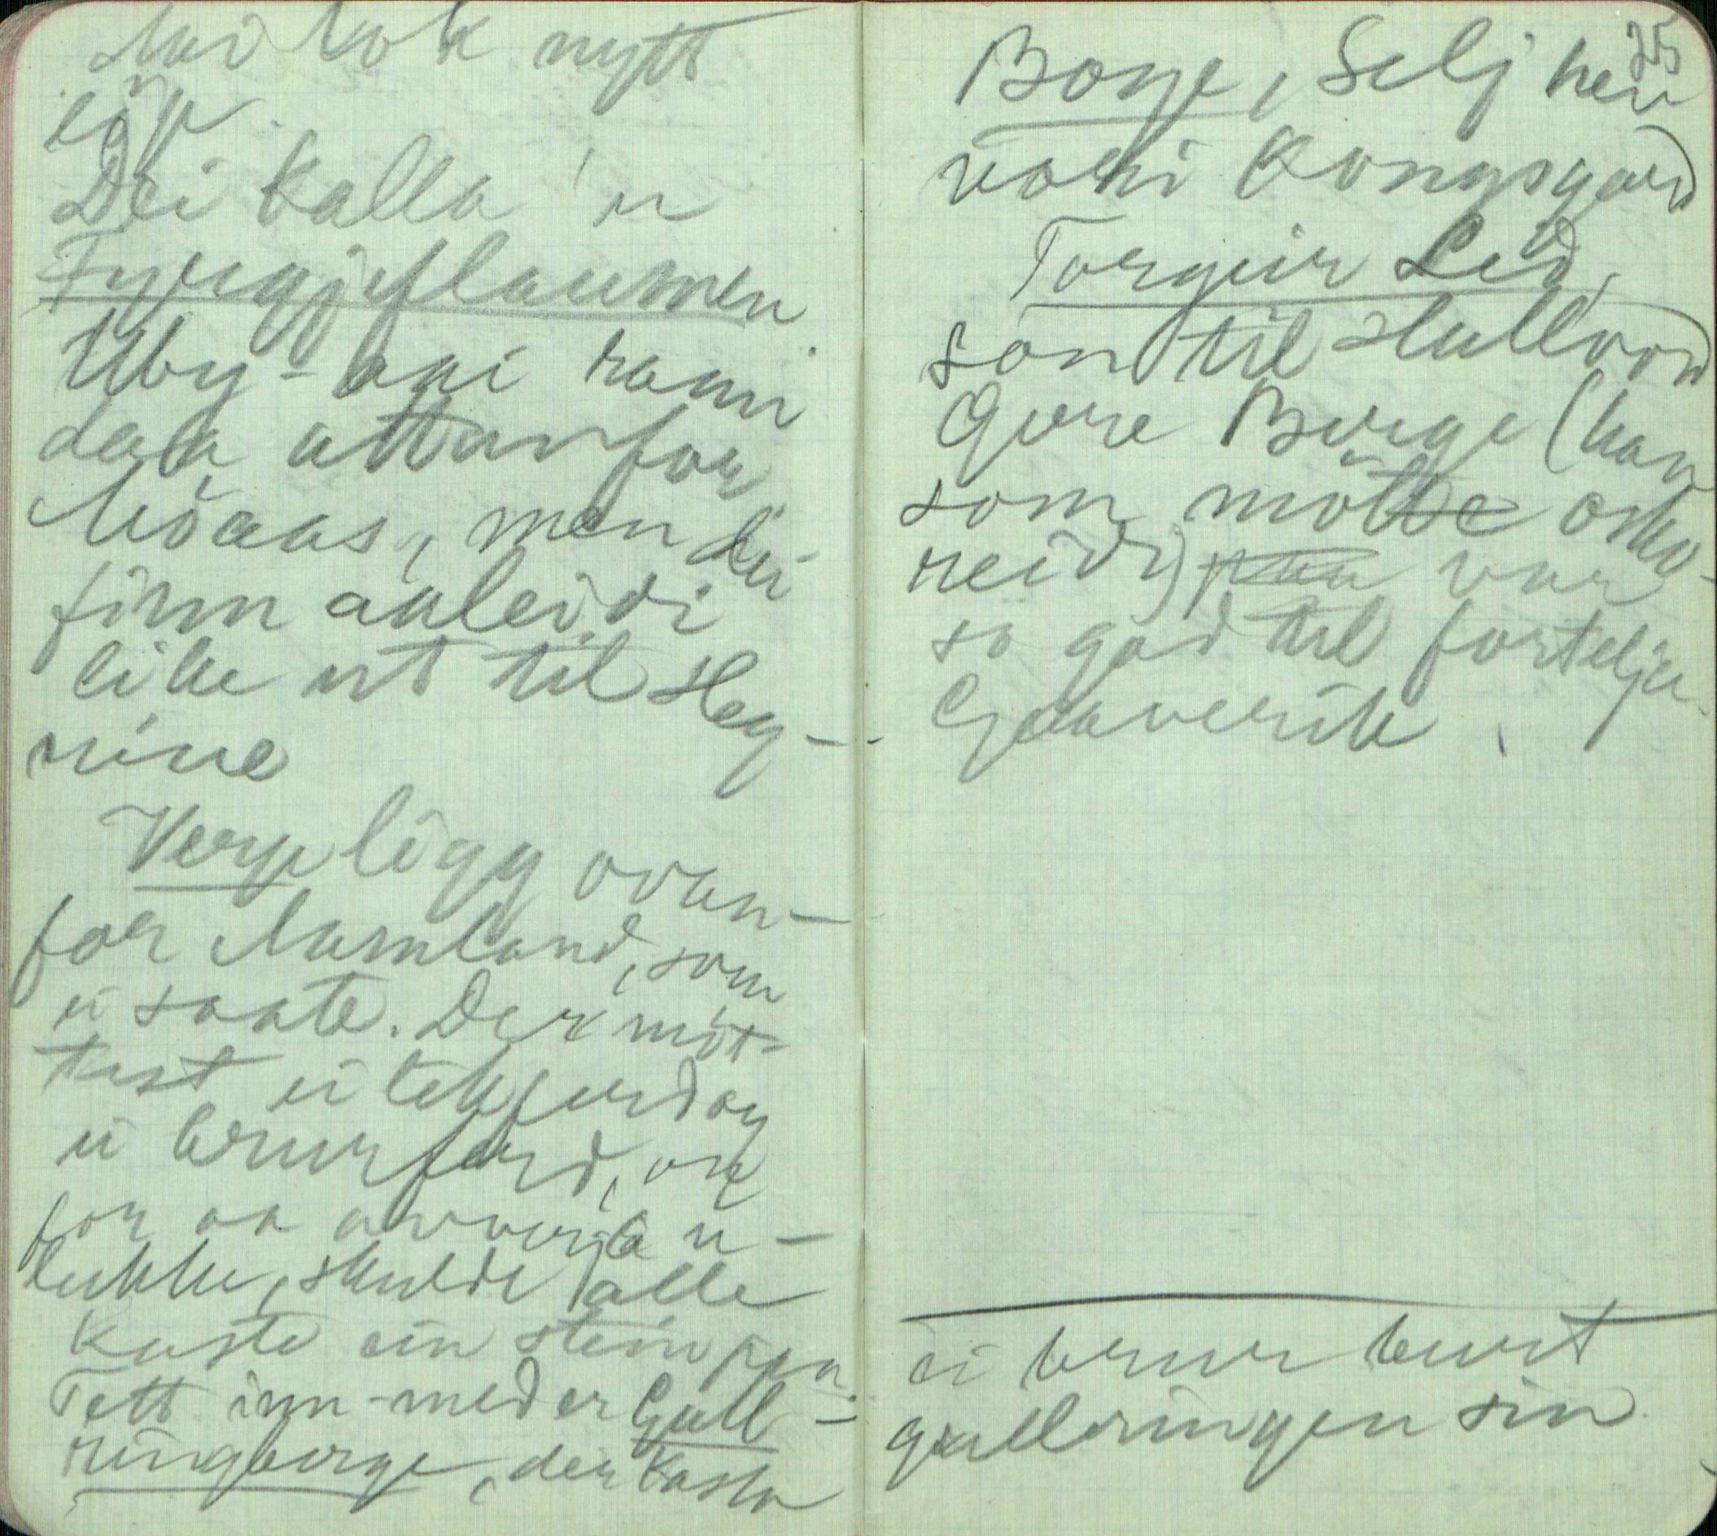 dei tok nytt
löp.
Dei kalla 'n
Fyrigjeflaumen
Uby- aai rann
daa attanfor
Möaas, men dei
finn aaleidi
like ut til Heg-
nine
Verpe ligg ovan-
for Aamland, som
ei saate. Der möt-
test ei likferd og
ei brurferd, og
for aa avverja u-
lukke, skulde alle
kaste ein stein paa.
Tett inn-med er Gull-
ringberge, der kasta
25
Borge, Selj her
vori Kongsgard
Torgeir Lid,
son til Hallvor
Gure Berge (han
som möttte osko-
reidi) paa var
so god til fortelja
Gaaverik
ei brur burt
gullringen sin